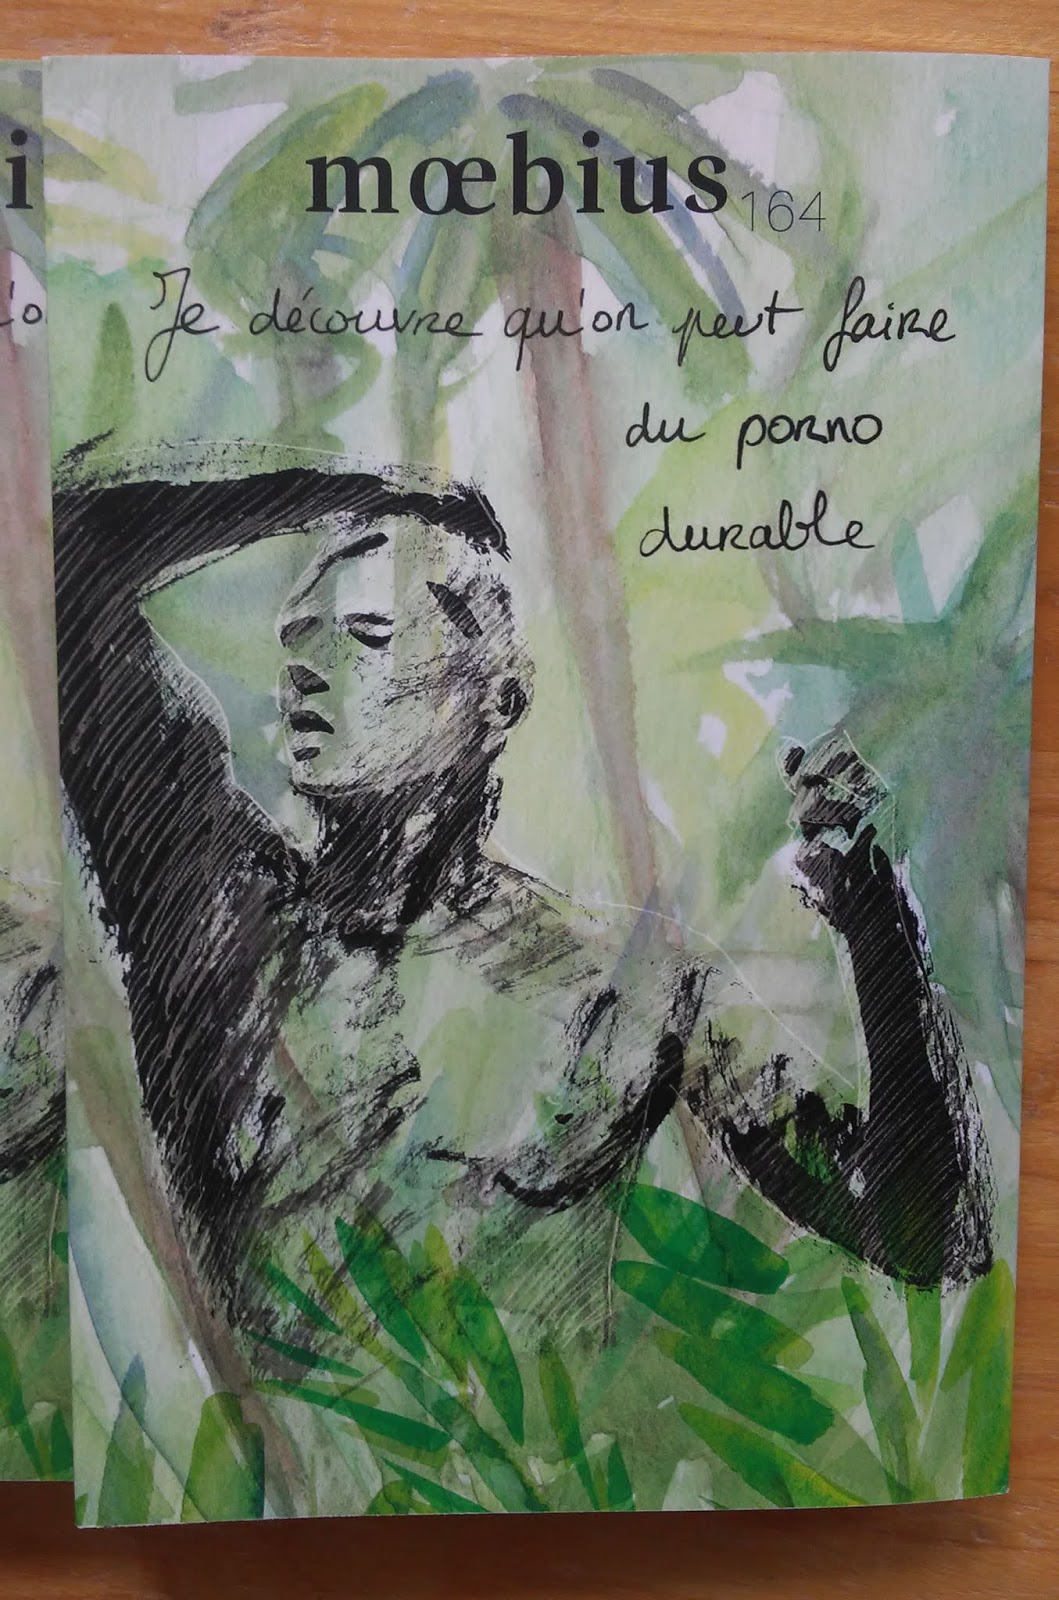 mœbius 164
Je découvre qu'on peut faire
du porno
durable
i
'o